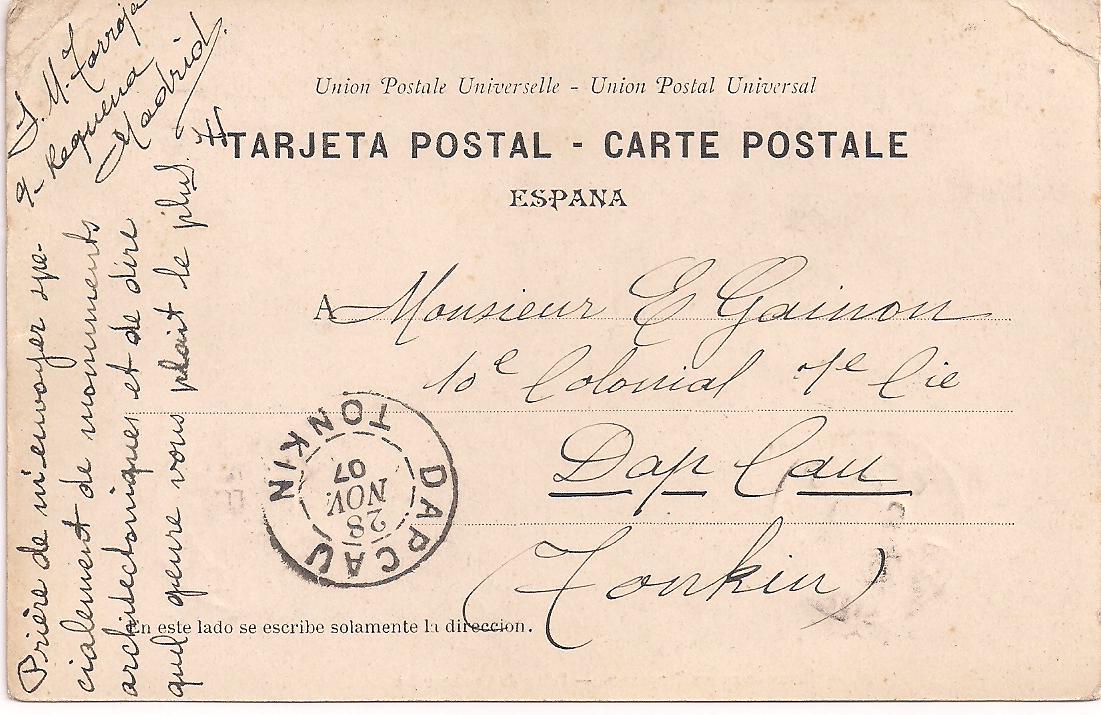 Union Postale Universelle - Union Postal Universal
TARJETA POSTAL - CARTE POSTALE
ESPANA
A Monsieur E Gainon
10e Colonial 7e Cie
Dap Cau
(Tonkin)
En este lado se escribe solamente la direccion.
DAPCAU TONKIN
28
NOV.
07
Prière de m'envoyer spe-
cialement de monuments
architectoniques et de dire
quel genre vous plait le plus.
J. M. Torroja
9- Requena
Madrid.